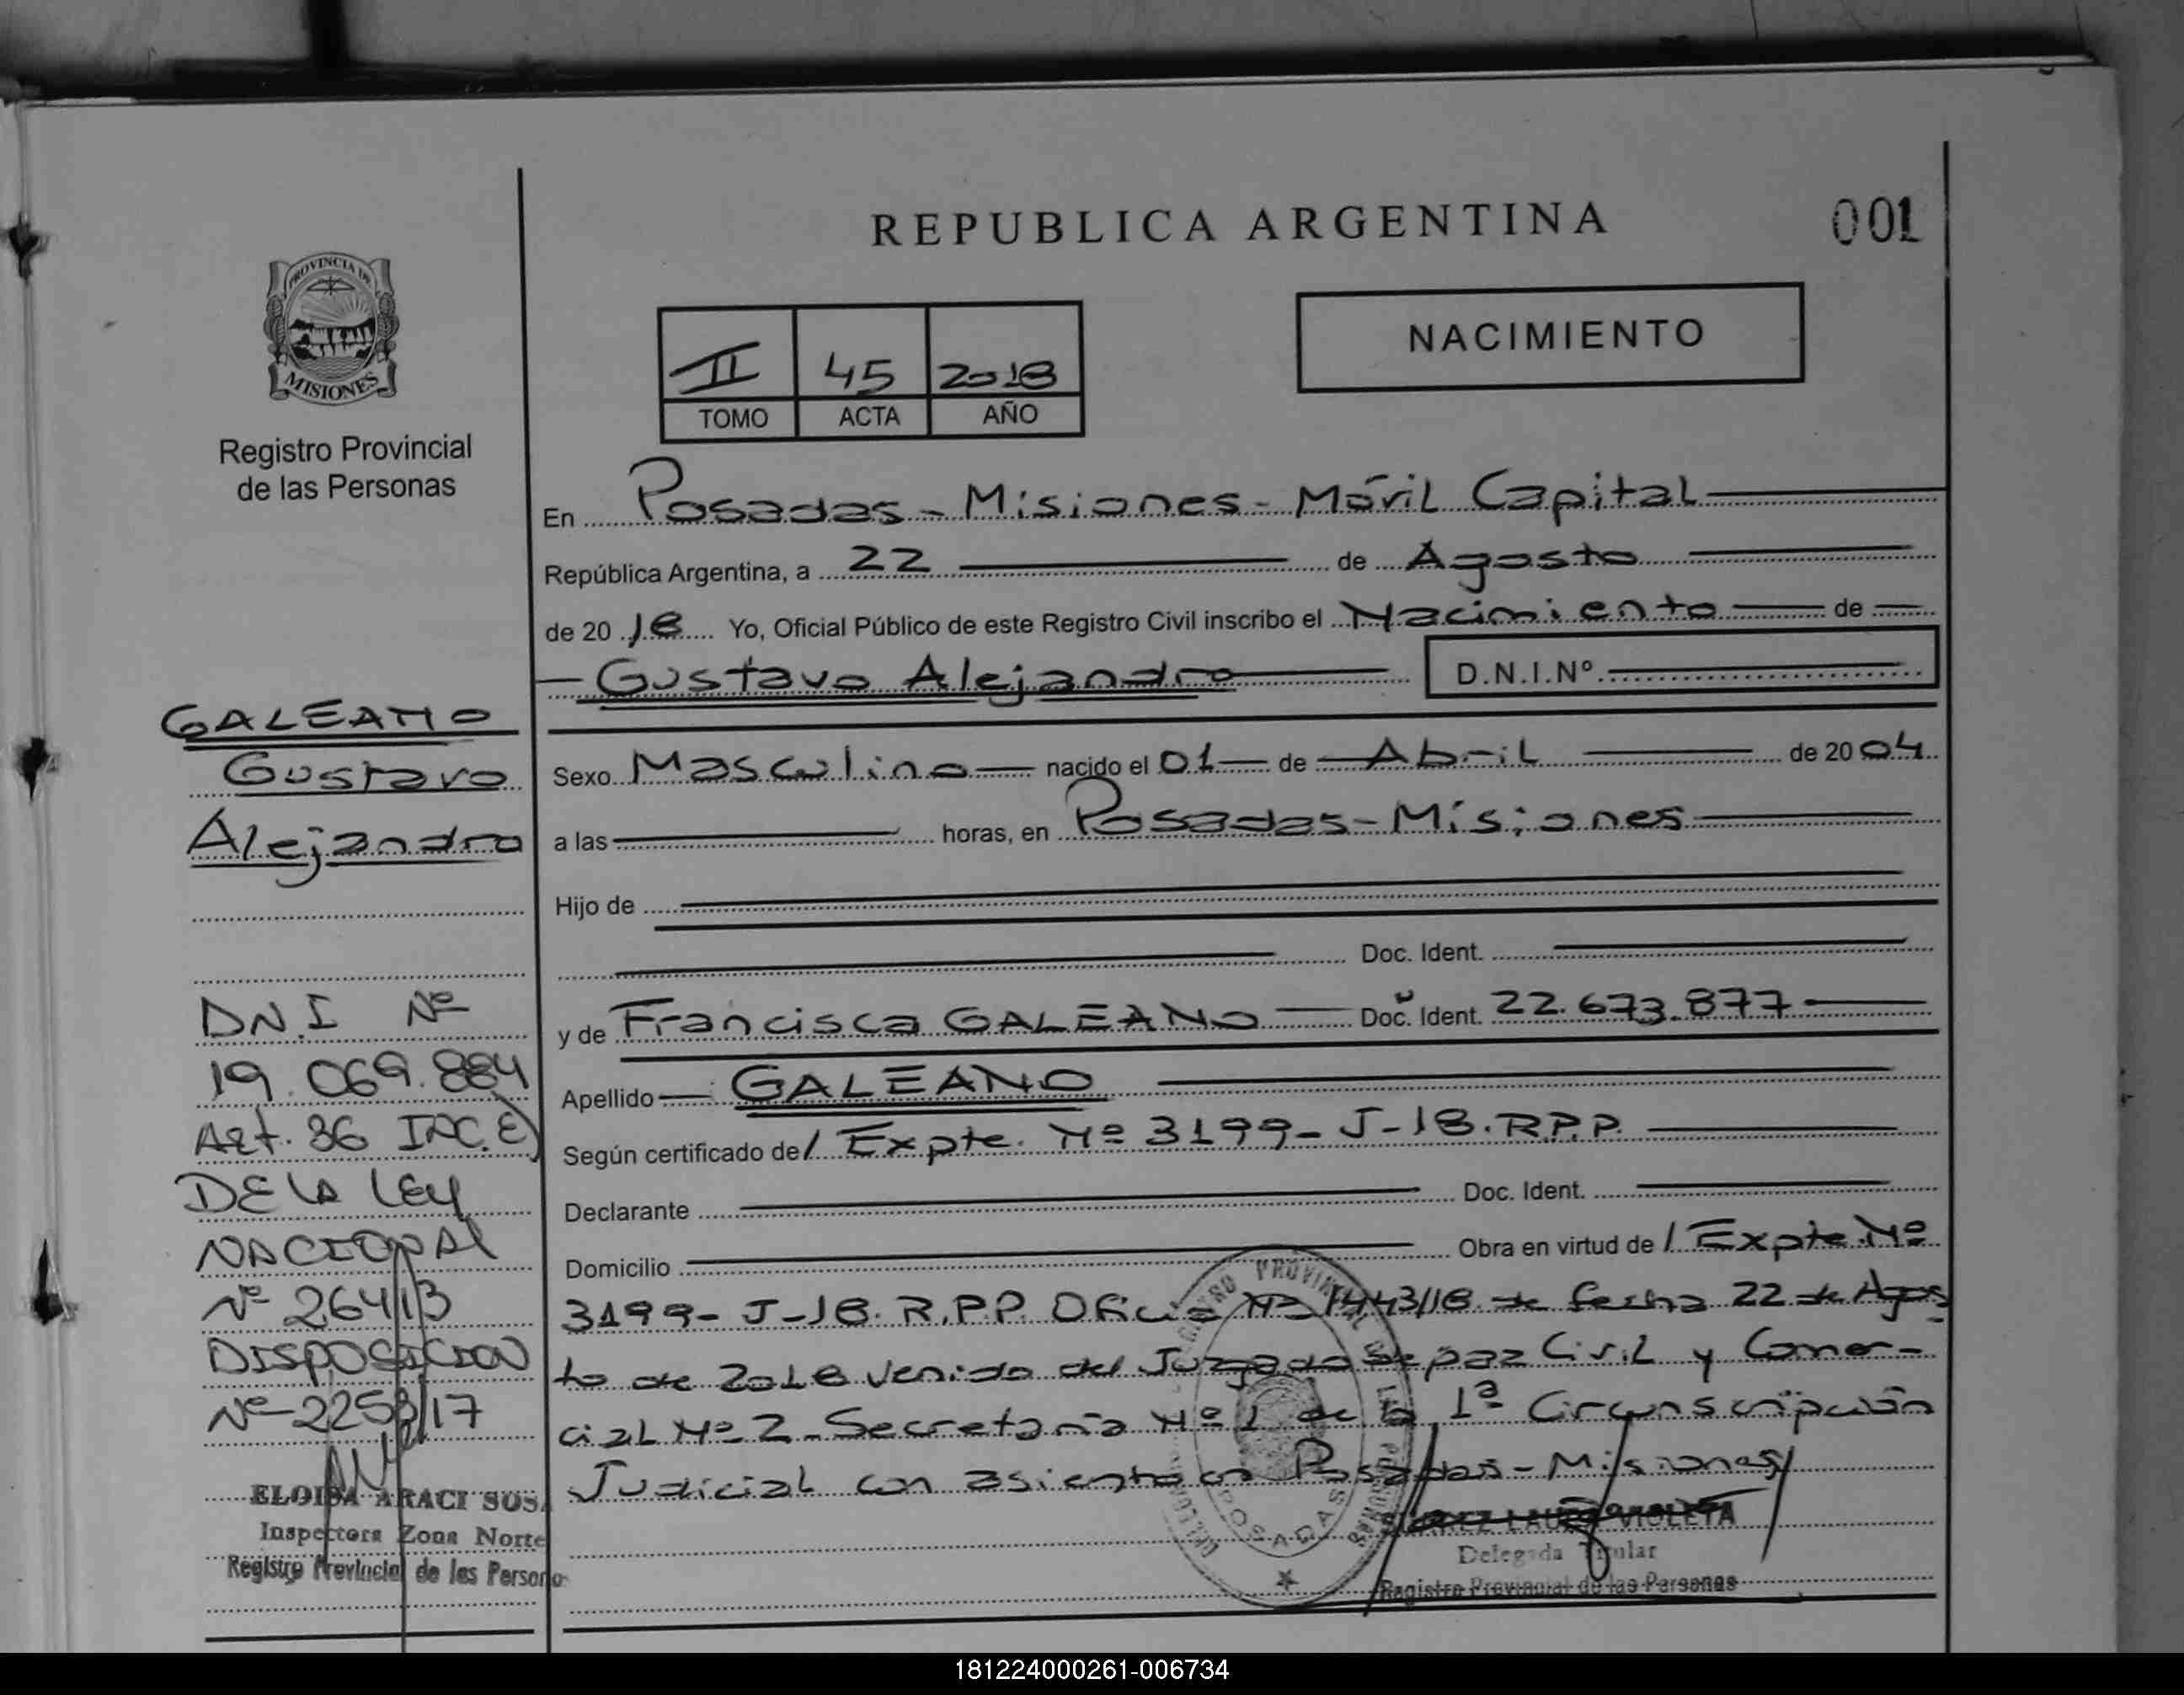 REPUBLICA ARGENTINA
001
PROVINCIA DE
MISIONES
Registro Provincial
de las Personas
II 45 2018
TOMO ACTA AÑO
NACIMIENTO
En Posadas - Misiones - Móvil Capital
República Argentina, a 22 de Agosto
de 2018 Yo, Oficial Público de este Registro Civil inscribo el Nacimiento de
Gustavo Alejandro D.N.I.Nº
Sexo Masculino nacido el 01 de Abril de 2004
a las horas, en Posadas - Misiones
Hijo de
Doc. Ident.
y de Francisca GALEANO Doc. Ident. 22.673.877
Apellido GALEANO
Según certificado de / Expte. Nº 3199 - J-18. R.P.P.
Declarante Doc. Ident.
Domicilio Obra en virtud de / Expte. Nº
3199 - J-18. R.P.P. Oficio Nº 1443/18 de fecha 22 de Agos
to de 2018 venido del Juzgado de paz Civil y Comer-
cial Nº 2 - Secretaría Nº 1 de la 1ª Circunscripción
Judicial con asiento en Posadas - Misiones
LAURA VIOLETA
Delegada Titular
Registro Provincial de las Personas
POSADAS
GALEANO
Gustavo
Alejandro
DN.I Nº
19.069.884
Art. 36 INC. E)
DE LA LEY
NACIONAL
Nº 26413
DISPOSICION
Nº 2258/17
ELOISA ARACI SOSA
Inspectora Zona Norte
Registro Provincial de las Persona
181224000261-006734